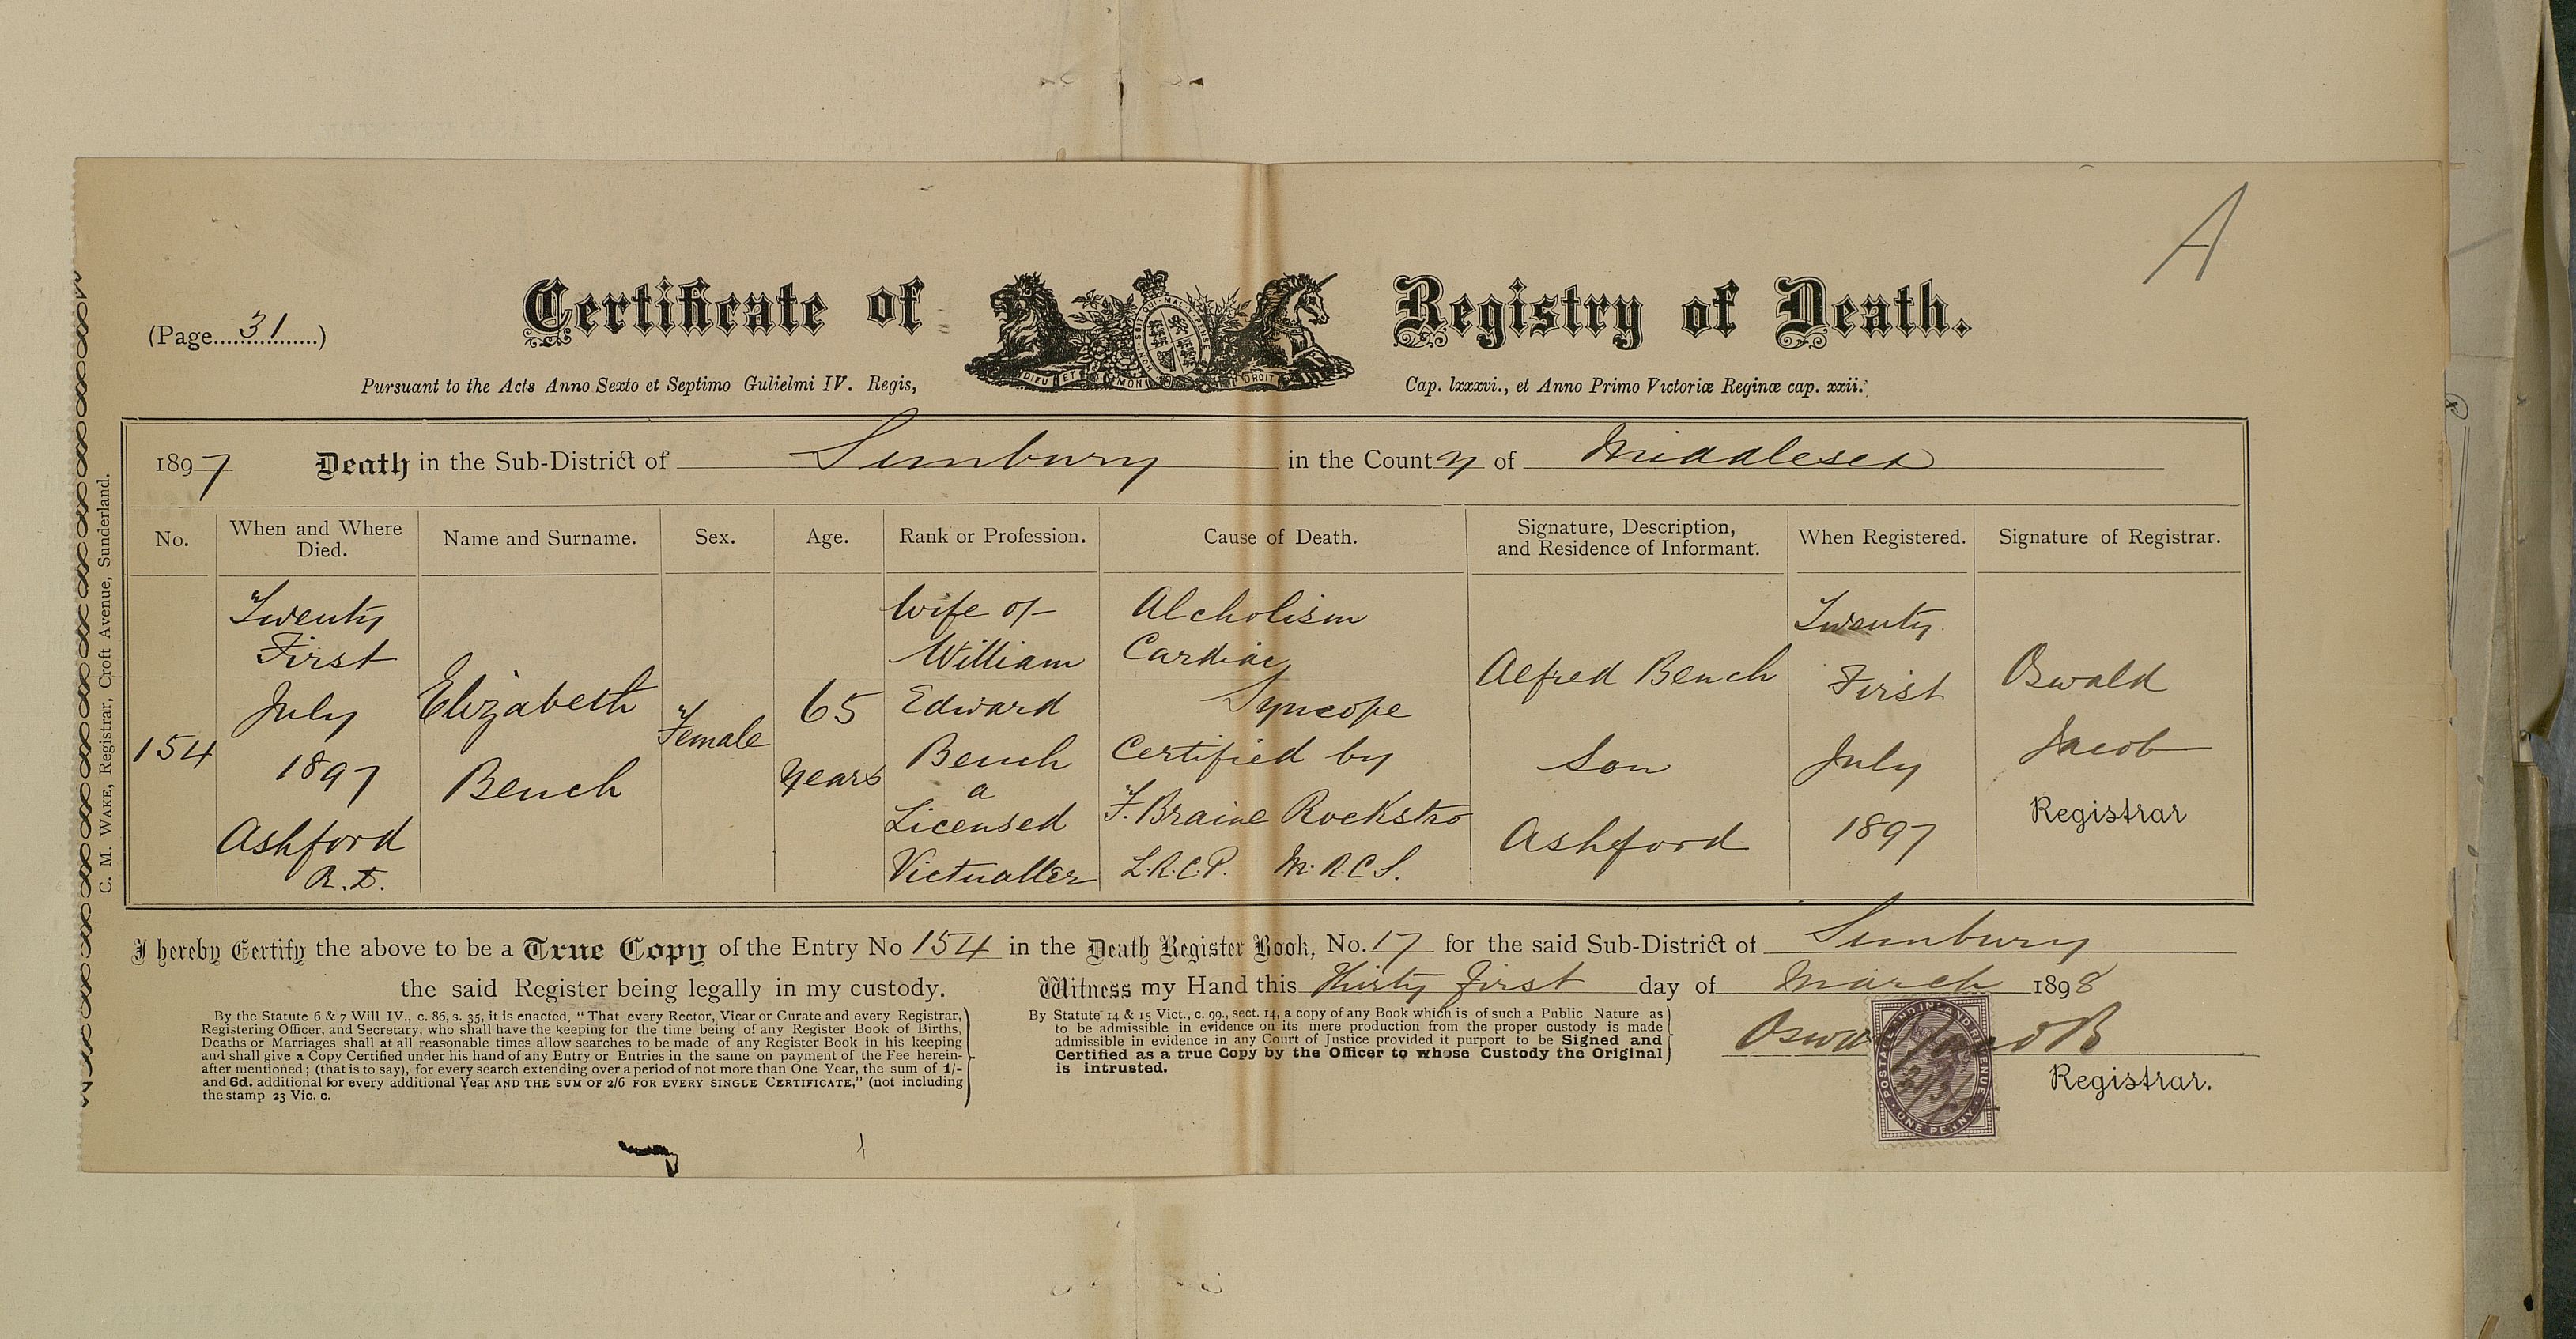 A
(Page 31)
Certificate of Registry of Death.
HONI · SOIT · QUI · MAL · Y · PENSE
DIEU ET MON DROIT
Pursuant to the Acts Anno Sexto et Septimo Gulielmi IV. Regis, Cap. lxxxvi., et Anno Primo Victoriæ Reginæ cap. xxii.
1897 Death in the Sub-District of Sunbury in the County of Middlesex
No.
When and Where
Died.
Name and Surname.
Sex.
Age.
Rank or Profession.
Cause of Death.
Signature, Description,
and Residence of Informant.
When Registered.
Signature of Registrar.
154
Twenty
First
July
1897
Ashford
R.D.
Elizabeth
Bench
Female
65
years
Wife of
William
Edward
Bench
a
Licensed
Victualler
Alcholism
Cardiac
Syncope
Certified by
F. Braine Rockstro
L.R.C.P. M.R.C.S.
Alfred Bench
Son
Ashford
Twenty
First
July
1897
Oswald
Jacob
Registrar
I hereby Certify the above to be a True Copy of the Entry No 154 in the Death Register Book, No. 17 for the said Sub-District of Sunbury
the said Register being legally in my custody. Witness my Hand this Thirty first day of March 1898
By the Statute 6 & 7 Will IV., c. 86, s. 35, it is enacted, "That every Rector, Vicar or Curate and every Registrar,
Registering Officer, and Secretary, who shall have the keeping for the time being of any Register Book of Births,
Deaths or Marriages shall at all reasonable times allow searches to be made of any Register Book in his keeping
and shall give a Copy Certified under his hand of any Entry or Entries in the same on payment of the Fee herein-
after mentioned; (that is to say), for every search extending over a period of not more than One Year, the sum of 1/-
and 6d. additional for every additional Year AND THE SUM OF 2/6 FOR EVERY SINGLE CERTIFICATE," (not including
the stamp 23 Vic. c.
By Statute 14 & 15 Vict., c. 99., sect. 14, a copy of any Book which is of such a Public Nature as
to be admissible in evidence on its mere production from the proper custody is made
admissible in evidence in any Court of Justice provided it purport to be Signed and
Certified as a true Copy by the Officer to whose Custody the Original
is intrusted.
Oswald Jacob
Registrar.
POSTAGE AND INLAND REVENUE
ONE PENNY
C. M. WAKE, Registrar, Croft Avenue, Sunderland.